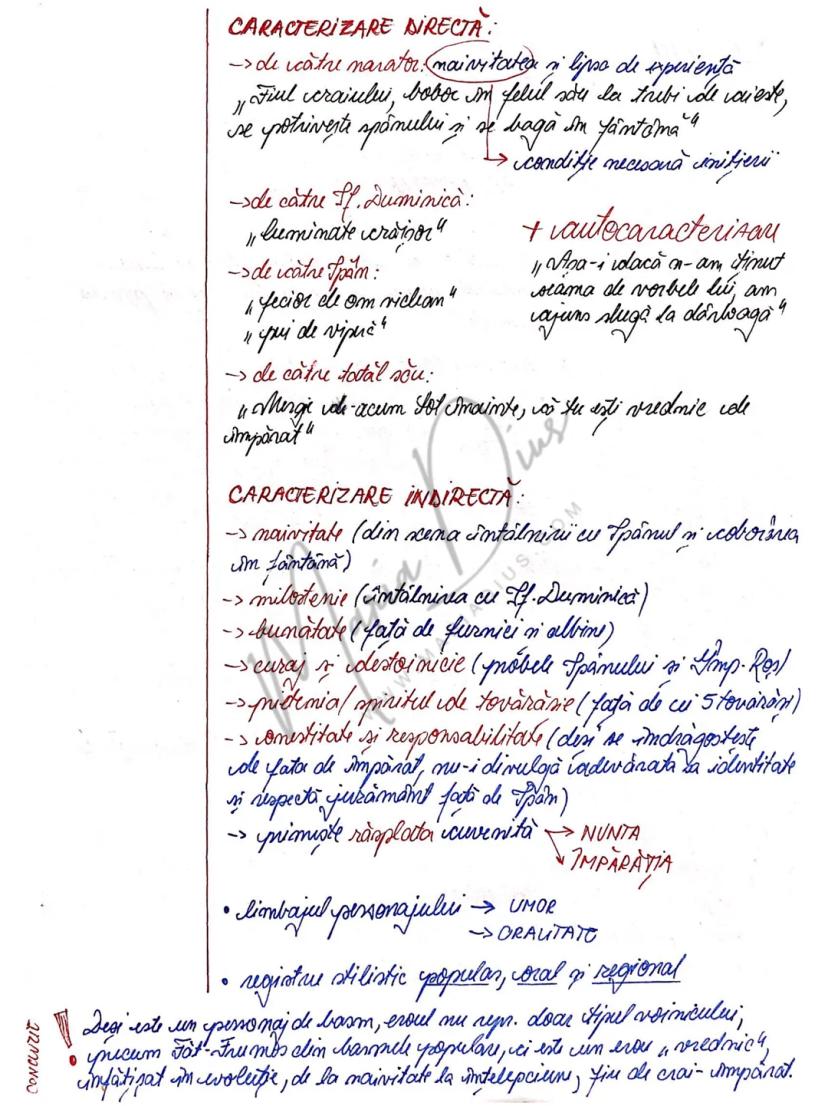 CARACTERIZARE DIRECTĂ:
→ de către narator: naivitatea și lipsa de experiență
„Fiul craiului, boboc în felul său la trebi de aieste,
se potrivește spânului și se bagă în fântână"
→ condiție necesară inițierii
→ de către Sf. Duminică:
„luminate crăișor"
→ de către Spân:
„fecior de om viclean"
„pui de viperă"
+ autocaracterizare
„Așa-i dacă n-am ținut
seama de vorbele lui, am
ajuns slugă la dârloagă"
→ de către tatăl său:
„Mergi de-acum tot înainte, că tu ești vrednic de
împărat"
CARACTERIZARE INDIRECTĂ:
→ naivitate (din scena întâlnirii cu Spânul și coborârea
în fântână)
→ milostenie (întâlnirea cu Sf. Duminică)
→ bunătate (față de furnici și albine)
→ curaj și destoinicie (probele Spânului și Împ. Roș)
→ prietenia/spiritul de tovărășie (față de cei 5 tovarăși)
→ onestitate și responsabilitate (deși se îndrăgostește
de fata de împărat, nu-i divulgă adevărata sa identitate
și respectă jurământ față de Spân)
→ primește răsplata cuvenită → NUNTA
→ ÎMPĂRĂȚIA
• limbajul personajului → UMOR
→ ORALITATE
• registre stilistic popular, oral și regional
CONCLUZIE
! Deși este un personaj de basm, eroul nu repr. doar tipul voinicului,
precum Făt-Frumos din basmele populare, ci este un erou „vrednic",
înfățișat în evoluție, de la naivitate la înțelepciune, fiu de crai - împărat.
Maria Dius
WWW.MARIADIUS.COM